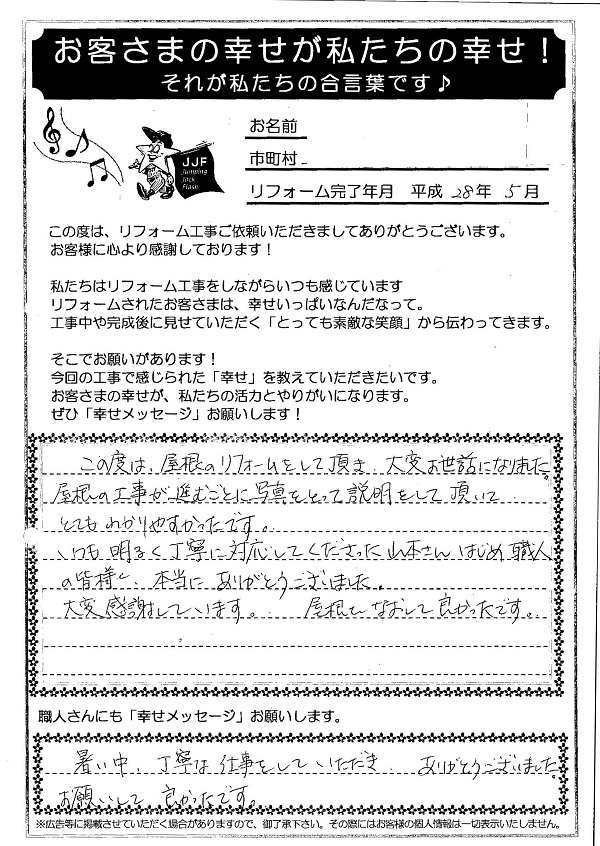 お客さまの幸せが私たちの幸せ！
それが私たちの合言葉です♪
JJF
Jumping
Jack
Flash
お名前
市町村
リフォーム完了年月 平成 28年 5月
この度は、リフォーム工事ご依頼いただきましてありがとうございます。
お客様に心より感謝しております！
私たちはリフォーム工事をしながらいつも感じています
リフォームされたお客さまは、幸せいっぱいなんだなって。
工事中や完成後に見せていただく「とっても素敵な笑顔」から伝わってきます。
そこでお願いがあります！
今回の工事で感じられた「幸せ」を教えていただきたいです。
お客さまの幸せが、私たちの活力とやりがいになります。
ぜひ「幸せメッセージ」お願いします！
この度は、屋根のリフォームをして頂き、大変お世話になりました。
屋根の工事が進むごとに写真をとって説明をして頂いて
とてもわかりやすかったです。
いつも明るく丁寧に対応してくださった山本さんはじめ職人
の皆様、本当にありがとうございました。
大変感謝しています。 屋根をなおして良かったです。
職人さんにも「幸せメッセージ」お願いします。
暑い中、丁寧な仕事をしていただき ありがとうございました。
お願いして良かったです。
※広告等に掲載させていただく場合がありますので、御了承下さい。その際にはお客様の個人情報は一切表示いたしません。